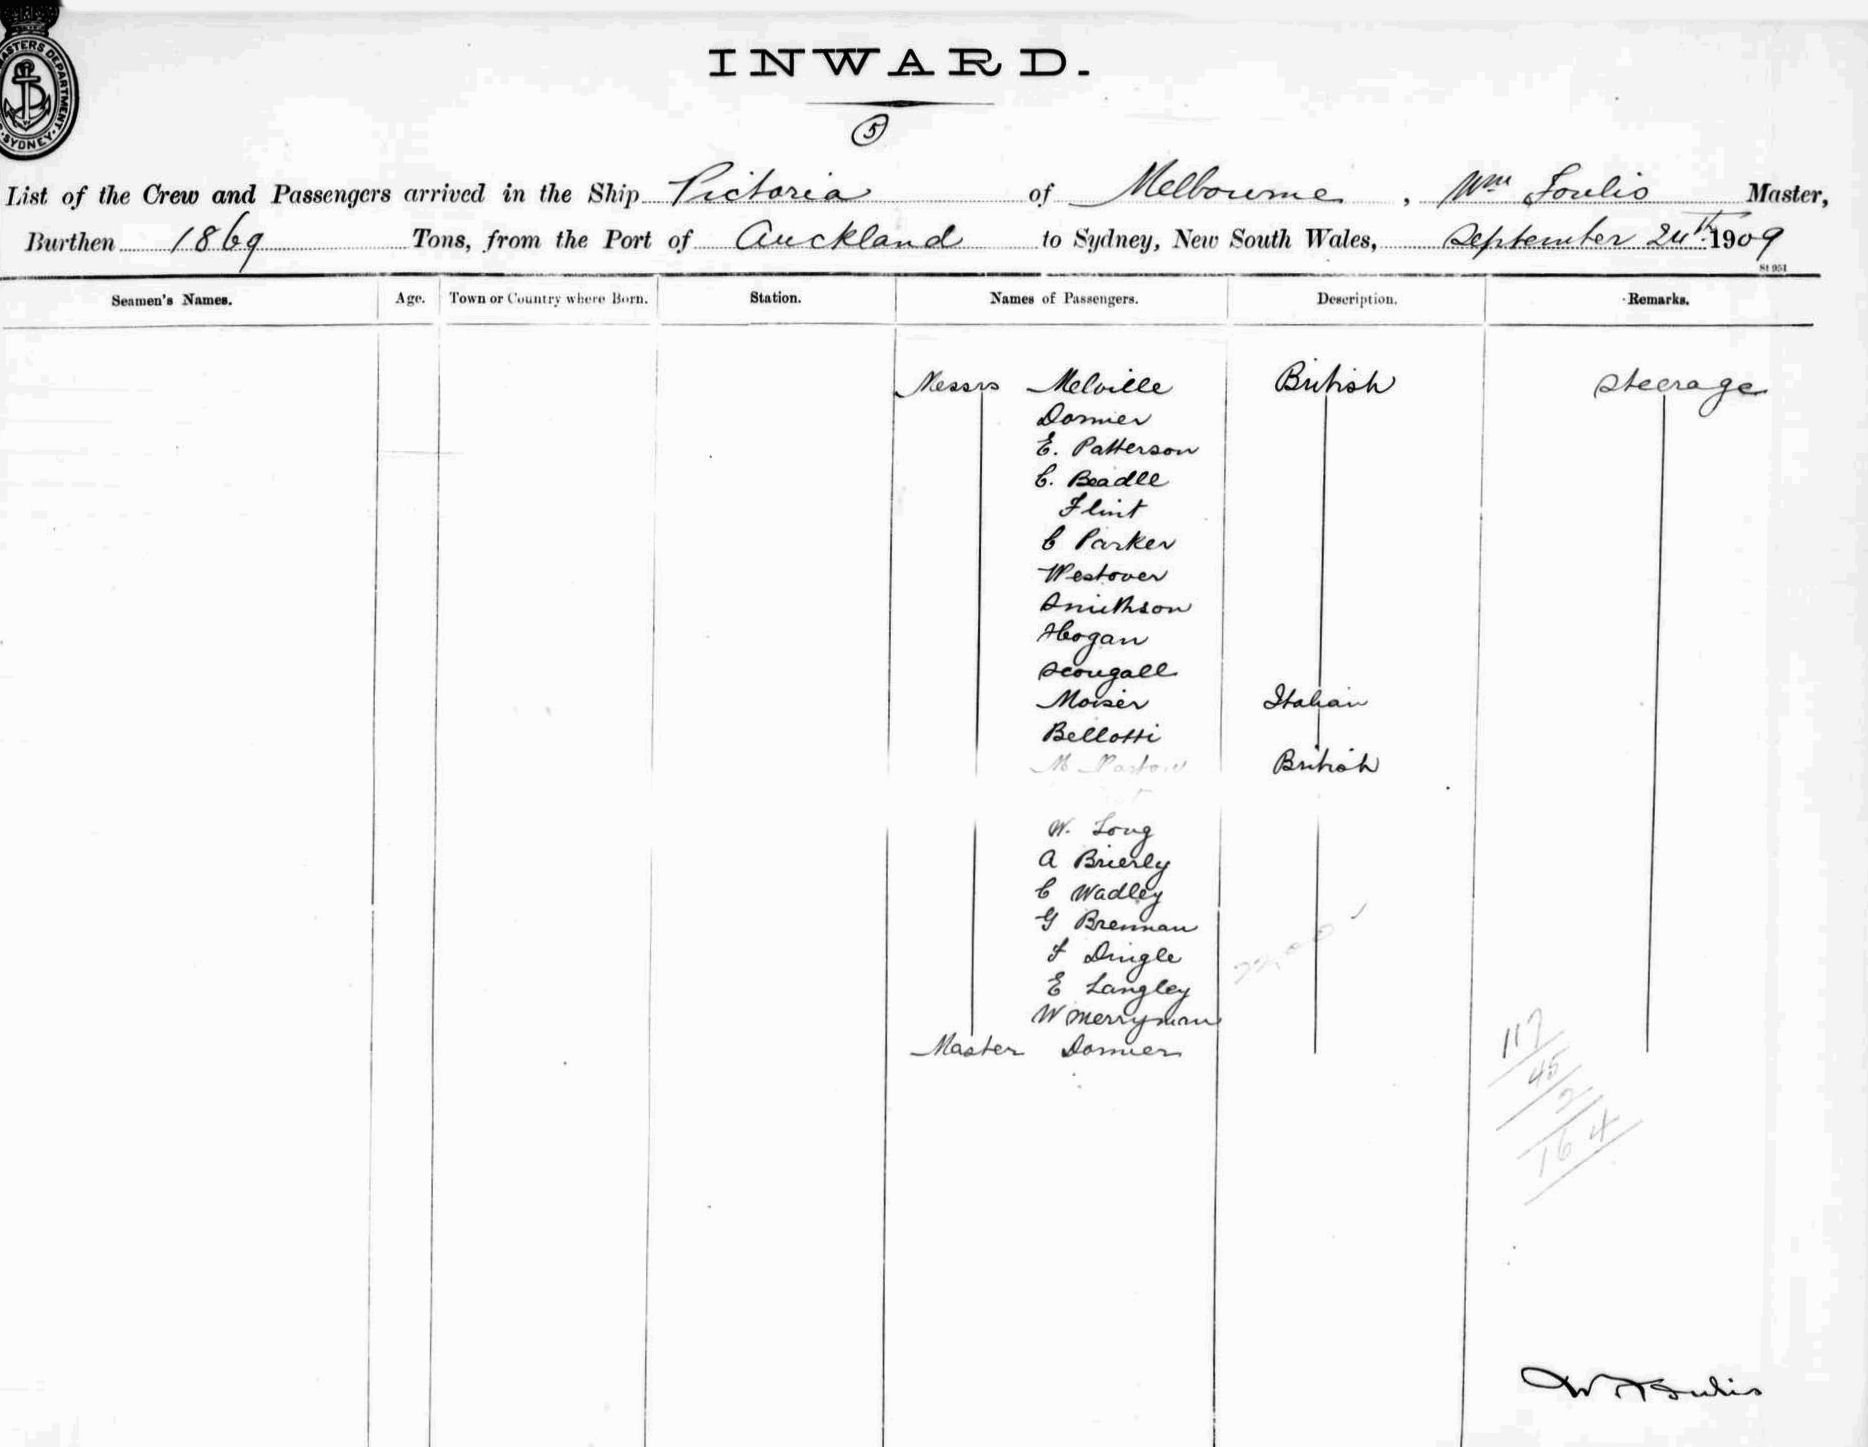 MASTERS DEPARTMENT
SYDNEY
INWARD.
5
List of the Crew and Passengers arrived in the Ship Victoria of Melbourne, Wm Foulis Master,
Burthen 1869 Tons, from the Port of Auckland to Sydney, New South Wales, September 24th 1909
St 951
Seamen's Names. Age. Town or Country where Born. Station. Names of Passengers. Description. Remarks.
Messrs Melville British Steerage
Dormer
E. Patterson
C. Beadle
Flint
C Parker
Westover
Smithson
Hogan
Scougall
Moiser Italian
Bellotti
M British
W. Long
A Brierly
C Wadley
G Brennan
F Dingle
E Langley
W Merryman
Master Dormer
117
45
2
164
W Foulis